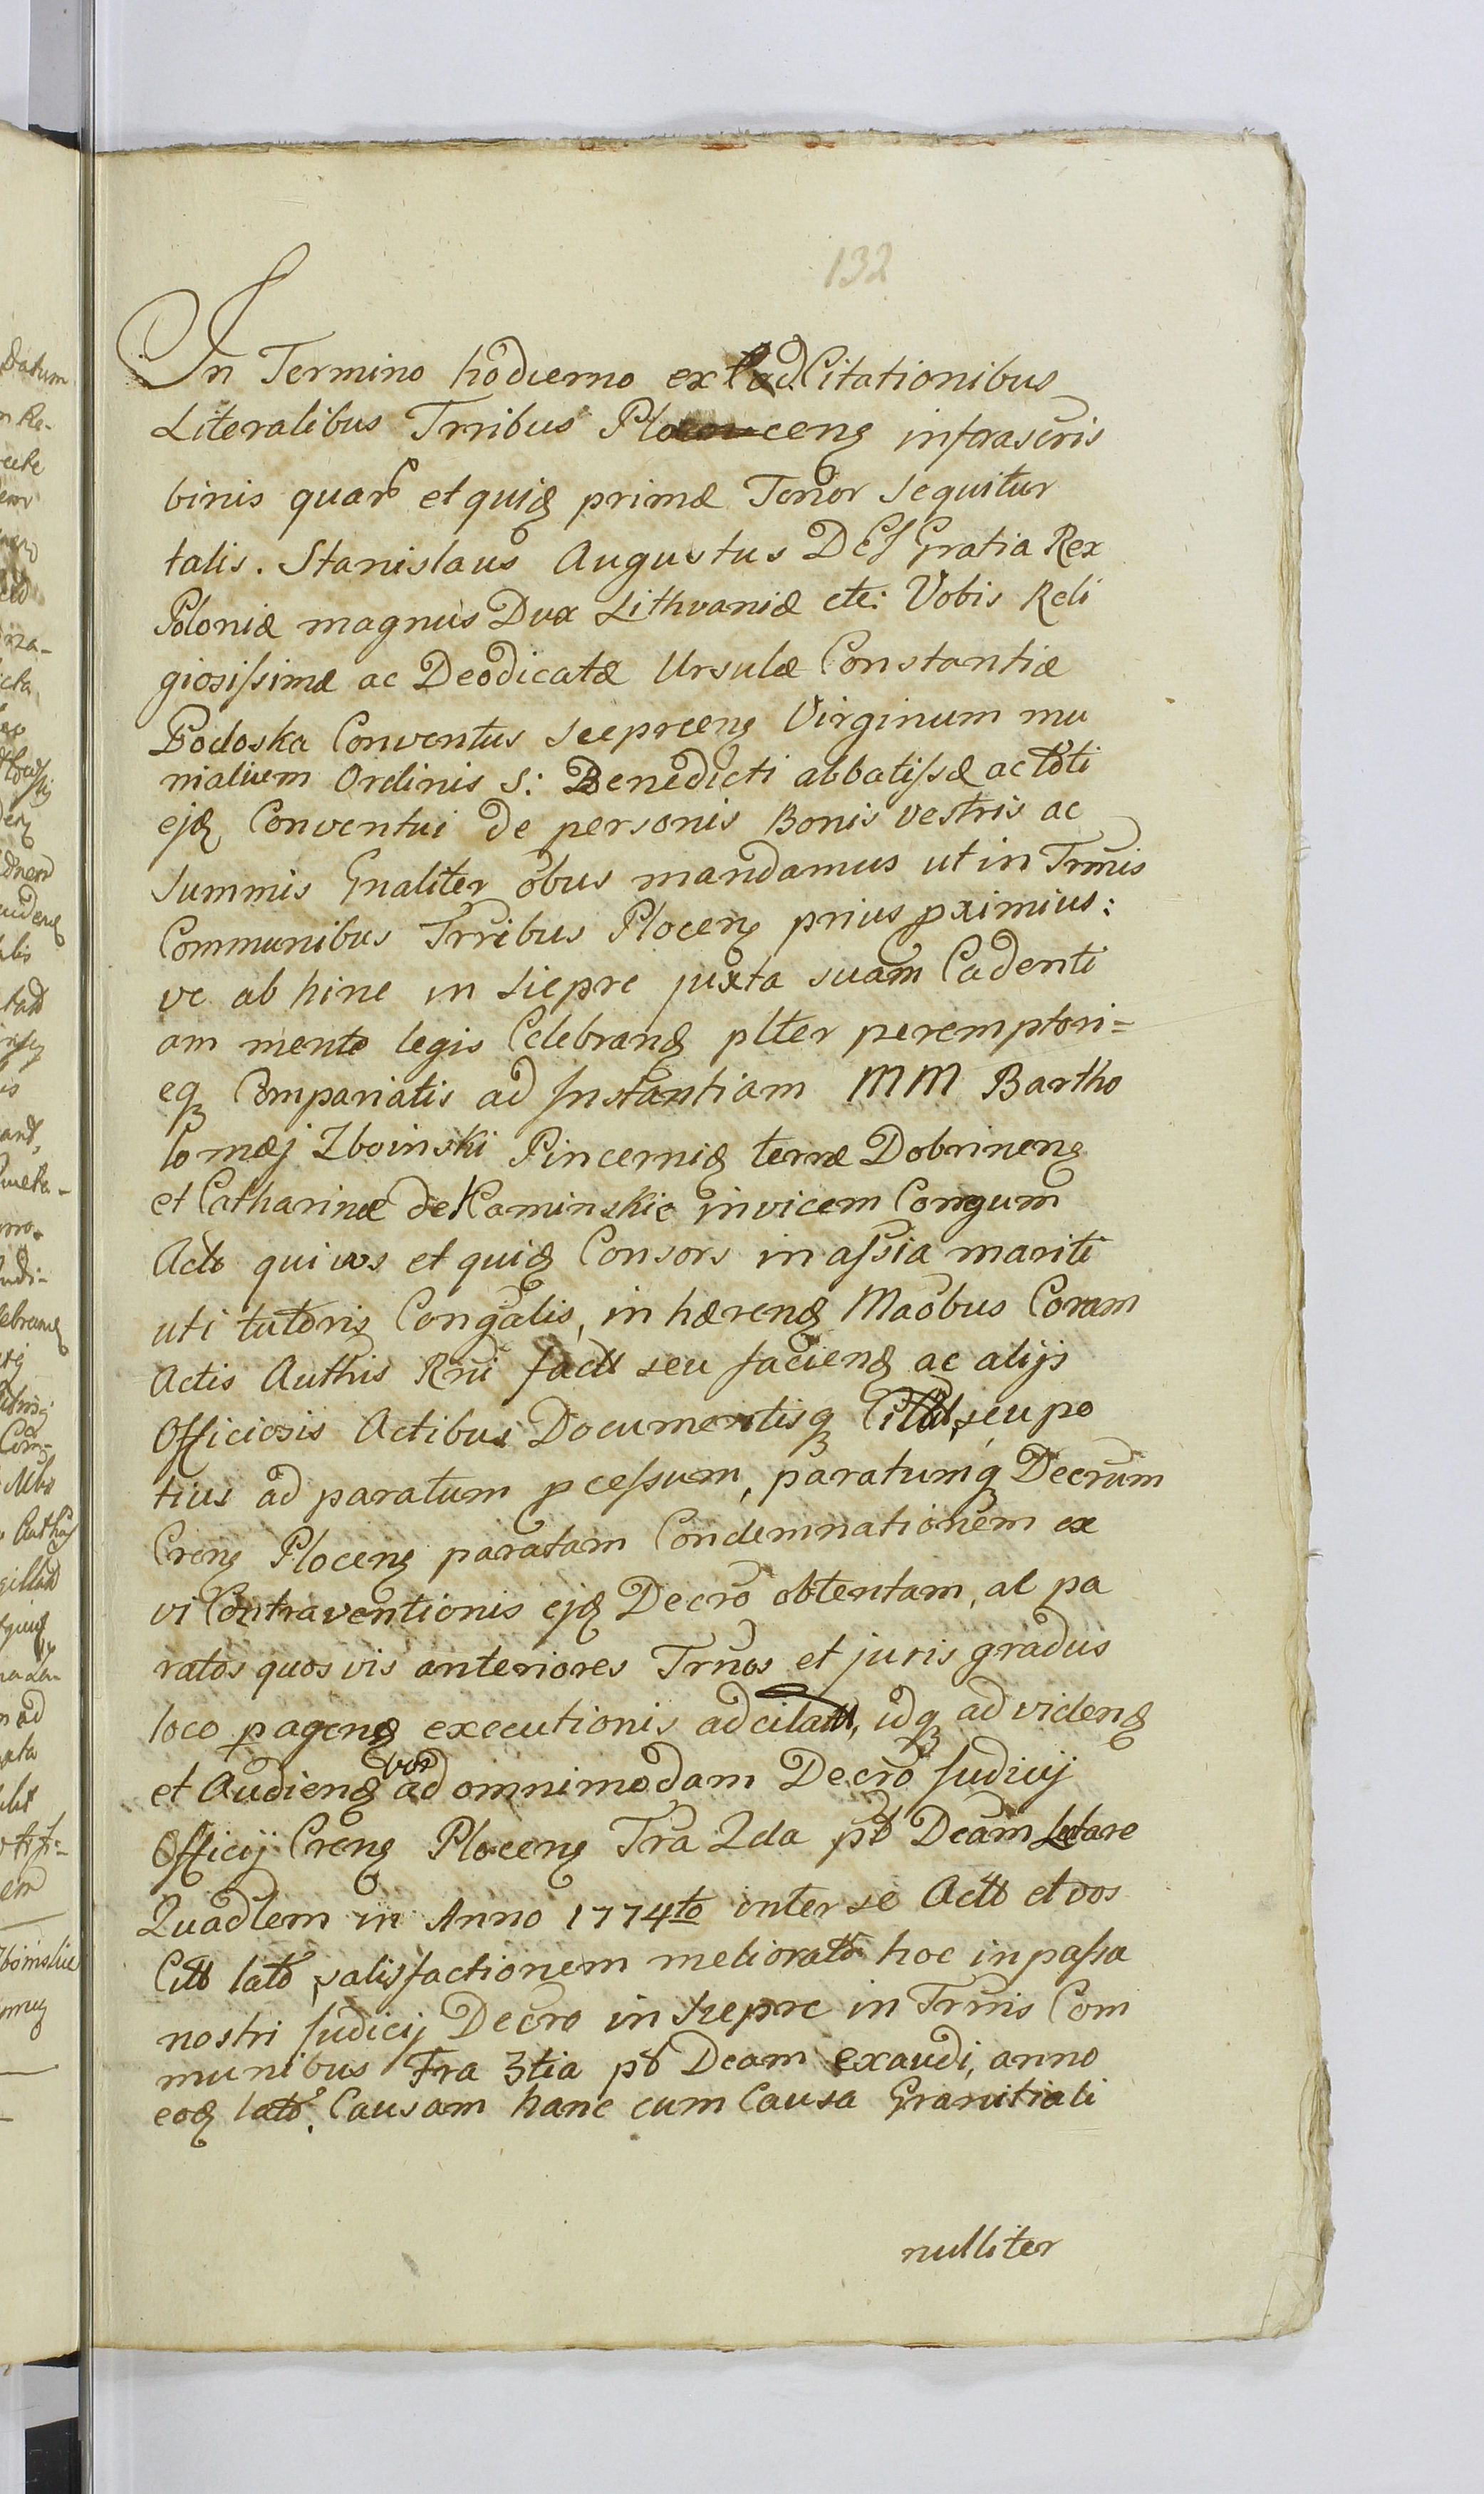 132
In Termino hodierno ex Citationibus
Literalibus Trribus Ploceng infrascris
binis quarb et quig primæ Tenor sequitur
talis. Stanislaus Augustus DEI Gratia Rex
Poloniæ magnus Dux Lithvaniæ etc: Vobis Reli
giosissimæ ac Deodicatæ Ursulæ Constantiæ
Podoska Conventus Siepreeng Virginum mu
nialium Ordinis S: Benedicti abbatissæ ac toti
ejg Conventui de personis Bonis vestris ac
summis Gnaliter obus mandamus ut in Trmis
Communibus Trribus Ploceng prius pximius:
ve ab hinc in Siepre juxta suam Cadenti
am mente legis Celebrang plter peremptori=
eq Compariatis ad Instantiam MM Bartho
lomæj Zboinski Pincernig terræ Dobrineng
et Catharinæ de Kaminskie invicem Congum
Act quivs et quig Consors in assia mariti
uti tutoris Congalis, in hæreng Maobus Coram
Actis Authis Rni fact seu facieng ac alijs
Officiosis Actibus Documentisq seu po
tius ad paratum pcessum, paratumq Decrum
Creng Ploceng paratam Condemnationem ex
vi Contraventionis ejg Decro obtentam, al pa
ratos quosvis anteriores Trnos et juris gradus
loco pageng executionis adcitatt, idq ad videng
et Audieng ad omnimodam Decro Judicij
Officij Creng Ploceng Fra 2da pt Dcam Letare
Quadlem in Anno 1774to inter se Actt et vos
Citt latt satisfactionem meliorato hoc in passa
nostri Judicij Decro in Siepre in Trmis Com
munibus Fra 3tia pt Dcam exaudi, anno
eog latt. Causam hanc cum Causa Granitiali
nulliter